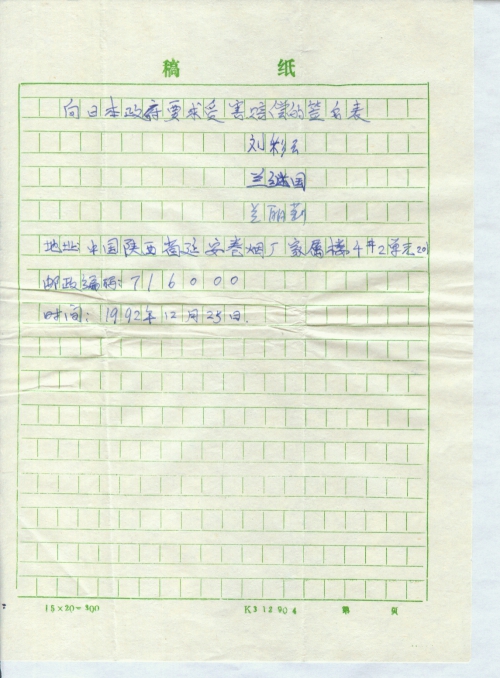 稿 纸
向日本政府要求受害赔偿的签名表
刘彩云
兰继国
兰丽莉
地址 中国陕西省延安卷烟厂家属楼4#2单元201
邮政编码:716000
时间:1992年12月25日.
15×20=300 K312904 第 页